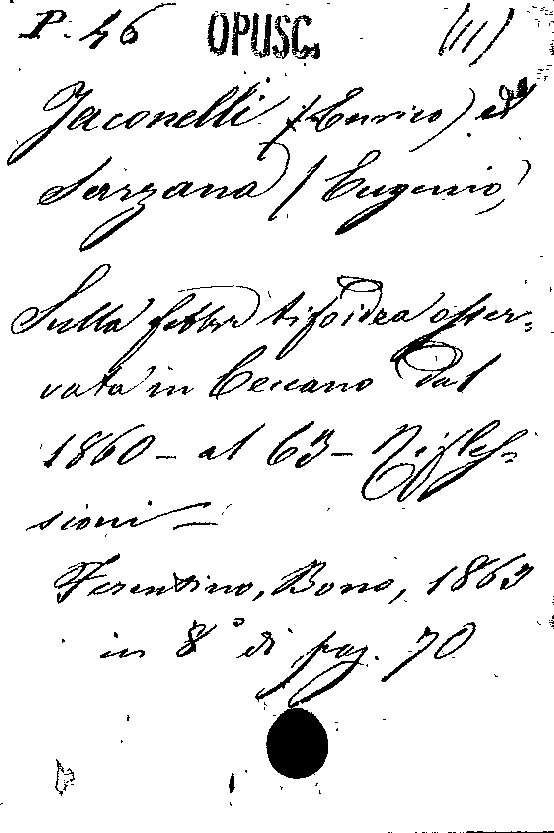 P. 46 OPUSC. (11)
Jaconelli (Enrico) ed
Sarzana (Eugenio)
Sulla febbre tifoidea osser-
vata in Ceccano dal
1860 - al 63 - Rifles-
sioni -
Ferentino, Bono, 1863
in 8° di pag. 70